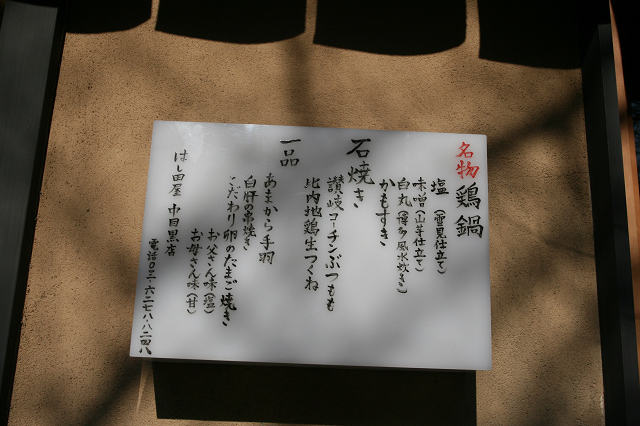 名物 鶏鍋
塩（雪見仕立て）
味噌（山芋仕立て）
白丸（博多風水炊き）
かもすき
石焼き
讃岐コーチンぶつもも
比内地鶏生つくね
一品
あまから手羽
白肝の串焼き
こだわり卵のたまご焼き
お父さん味（塩）
お母さん味（甘）
はし田屋 中目黒店
電話〇三・六二七八・八二四八